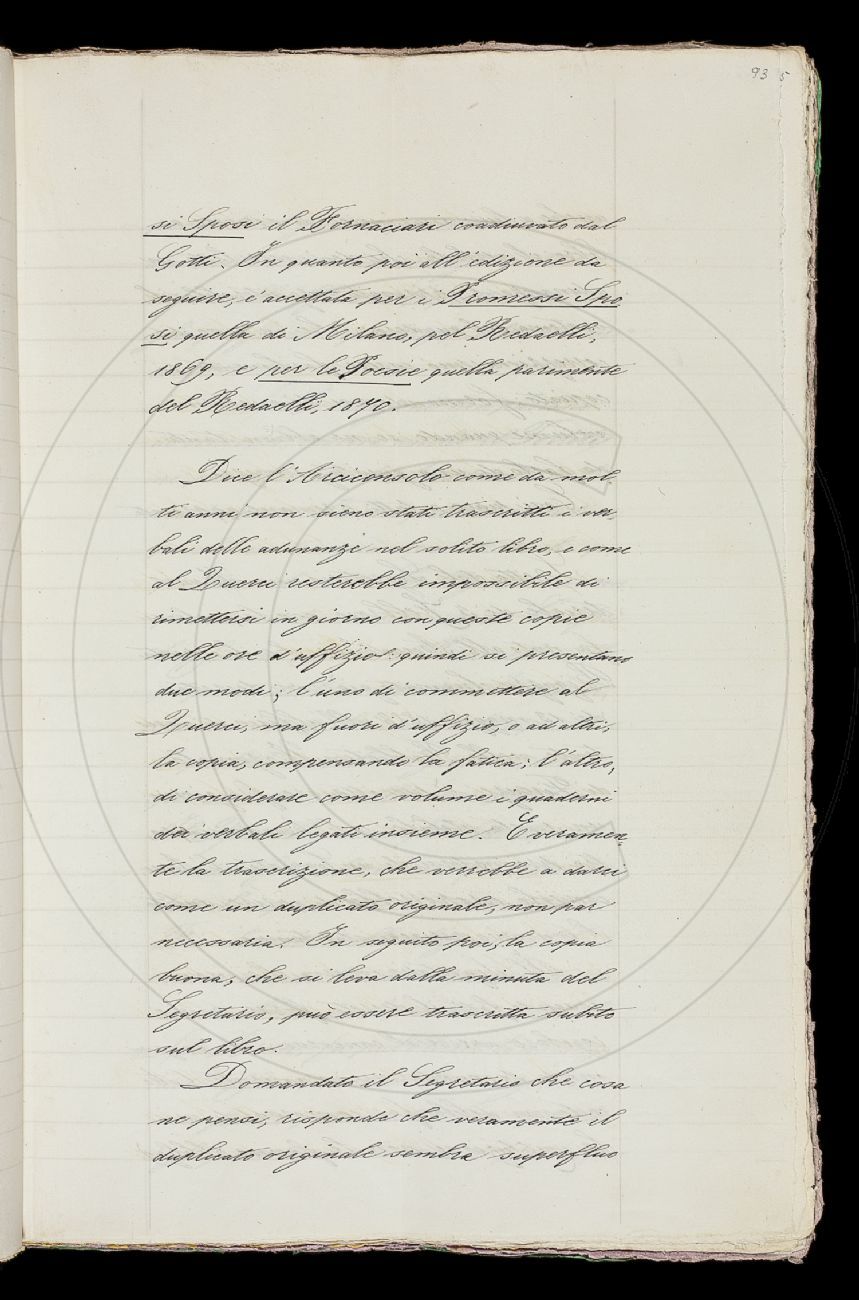 93 5
si Sposi il Fornaciari coadiuvato dal
Gotti. In quanto poi all'edizione da
seguire, è accettata per i Promessi Spo
si quella di Milano, pel Redaelli,
1869, e per le Poesie quella parimente
del Redaelli, 1870.
Dice l'Arciconsolo come da mol
ti anni non sieno stati trascritti i ver,
bali delle adunanze nel solito libro, e come
al Querci resterebbe impossibile di
rimettersi in giorno con queste copie
nelle ore d'uffizio: quindi si presentano
due modi; l'uno di commettere al
Querci, ma fuori d'uffizio, o ad altri,
la copia, compensando la fatica; l'altro,
di considerare come volume i quaderni
dei verbali legati insieme. E veramen,
te la trascrizione, che verrebbe a darci
come un duplicato originale, non par
necessaria. In seguito poi, la copia
buona, che si leva dalla minuta del
Segretario, può essere trascritta subito
sul libro.
Domandato il Segretario che cosa
ne pensi, risponde che veramente il
duplicato originale sembra superfluo